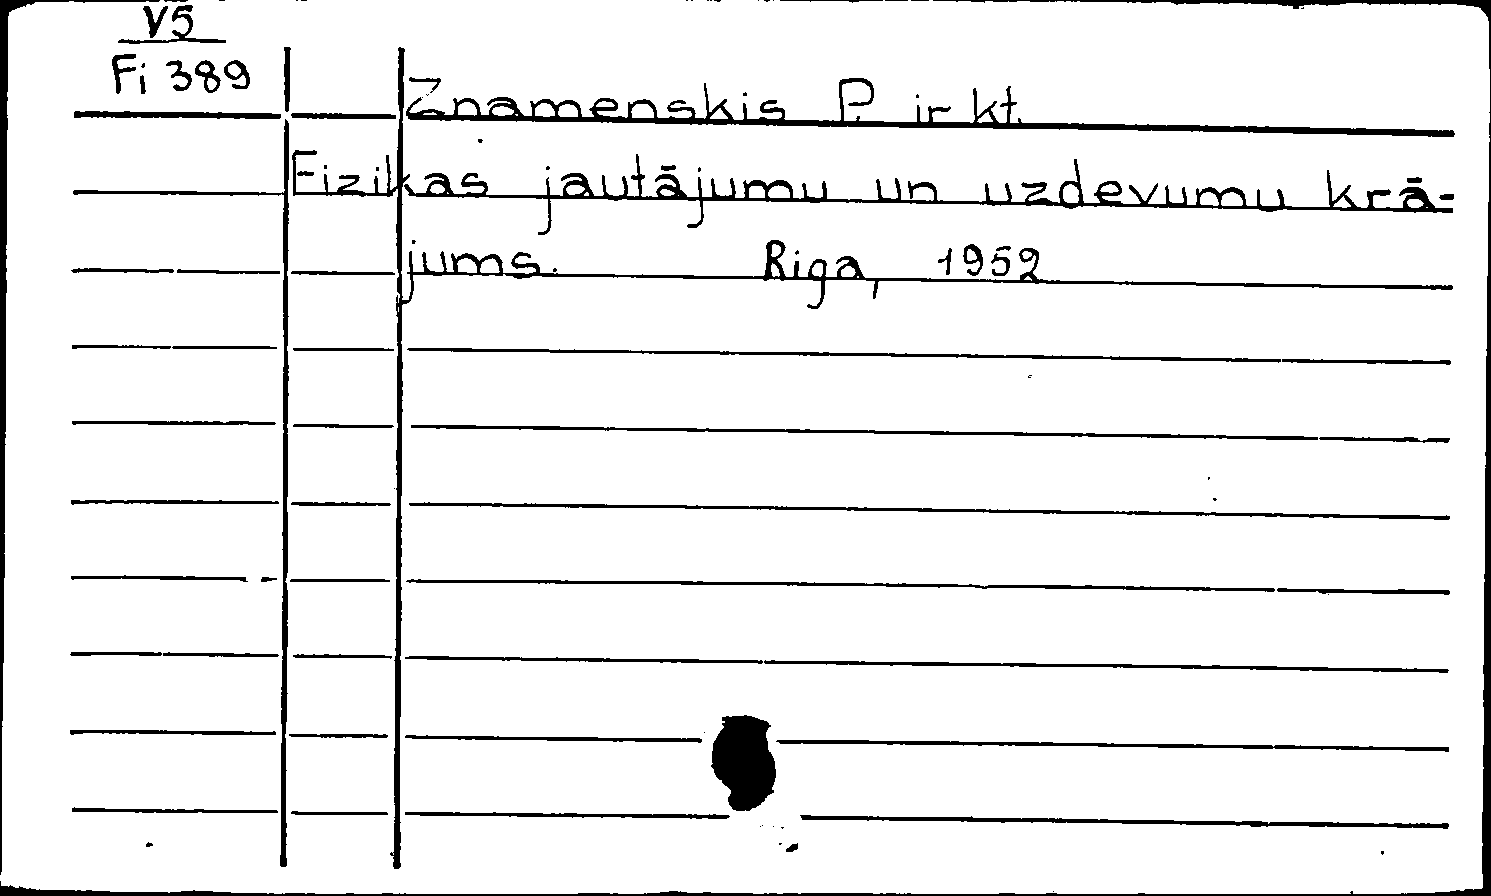 V5
Fi 389
Znamenskis P. ir kt.
Fizikas jautājumu un uzdevumu krā-
jums. Riga, 1952